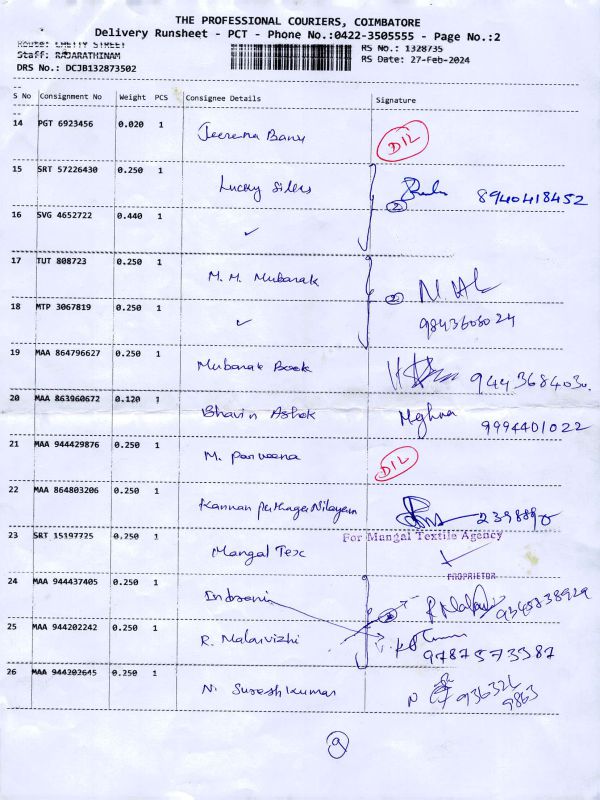 THE PROFESSIONAL COURIERS, COIMBATORE
Delivery Runsheet - PCT - Phone No.:0422-3505555 - Page No.:2
Route: CHETTY STREET
RS No.: 1328735
Staff: RAJARATHINAM
RS Date: 27-Feb-2024
DRS No.: DCJB132873502
S No Consignment No Weight PCS Consignee Details Signature
14 PGT 6923456 0.020 1 Jeerema Banu DIL
15 SRT 57226430 0.250 1 Lucky Silks 8940418452
16 SVG 4652722 0.440 1 ✓
17 TUT 808723 0.250 1 M. M. Mubarak
18 MTP 3067819 0.250 1 ✓ 9843608024
19 MAA 864796627 0.250 1 Mubarak Book 9443684030.
20 MAA 863960672 0.120 1 Bhavin Ashok Meghna 9994401022
21 MAA 944429876 0.250 1 M. Parveena DIL
22 MAA 864803206 0.250 1 Kannan Puthaga Nilayam
23 SRT 15197725 0.250 1 Mangal Tex For Mangal Textile Agency
PROPRIETOR
24 MAA 944437405 0.250 1 Indrani
25 MAA 944202242 0.250 1 R. Malarvizhi 9787573387
26 MAA 944202645 0.250 1 N. Suresh kumar N 936326
9863
9